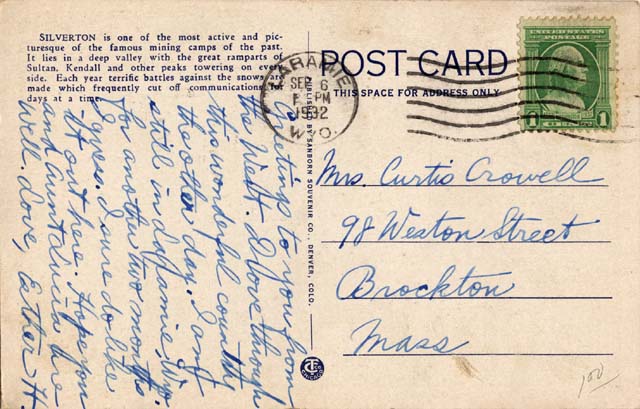 SILVERTON is one of the most active and pic-
turesque of the famous mining camps of the past.
It lies in a deep valley with the great ramparts of
Sultan, Kendall and other peaks towering on every
side. Each year terrific battles against the snows are
made which frequently cut off communications for
days at a time.
Greetings to you from
the West. Drove through
this wonderful country
the other day. I am
still in Laramie, Wyo.
for another two months
I guess. I sure do like
it out here. Hope you
and Aunt are
well. Love, Esther H.
PUBLISHED BY SANBORN SOUVENIR CO., DENVER, COLO.
POST CARD
THIS SPACE FOR ADDRESS ONLY
LARAMIE
SEP 6
PM
1932
WYO.
UNITED STATES
POSTAGE
1 CENT 1
Mrs. Curtis Crowell
98 Weston Street
Brockton
Mass
CT
CHICAGO
100